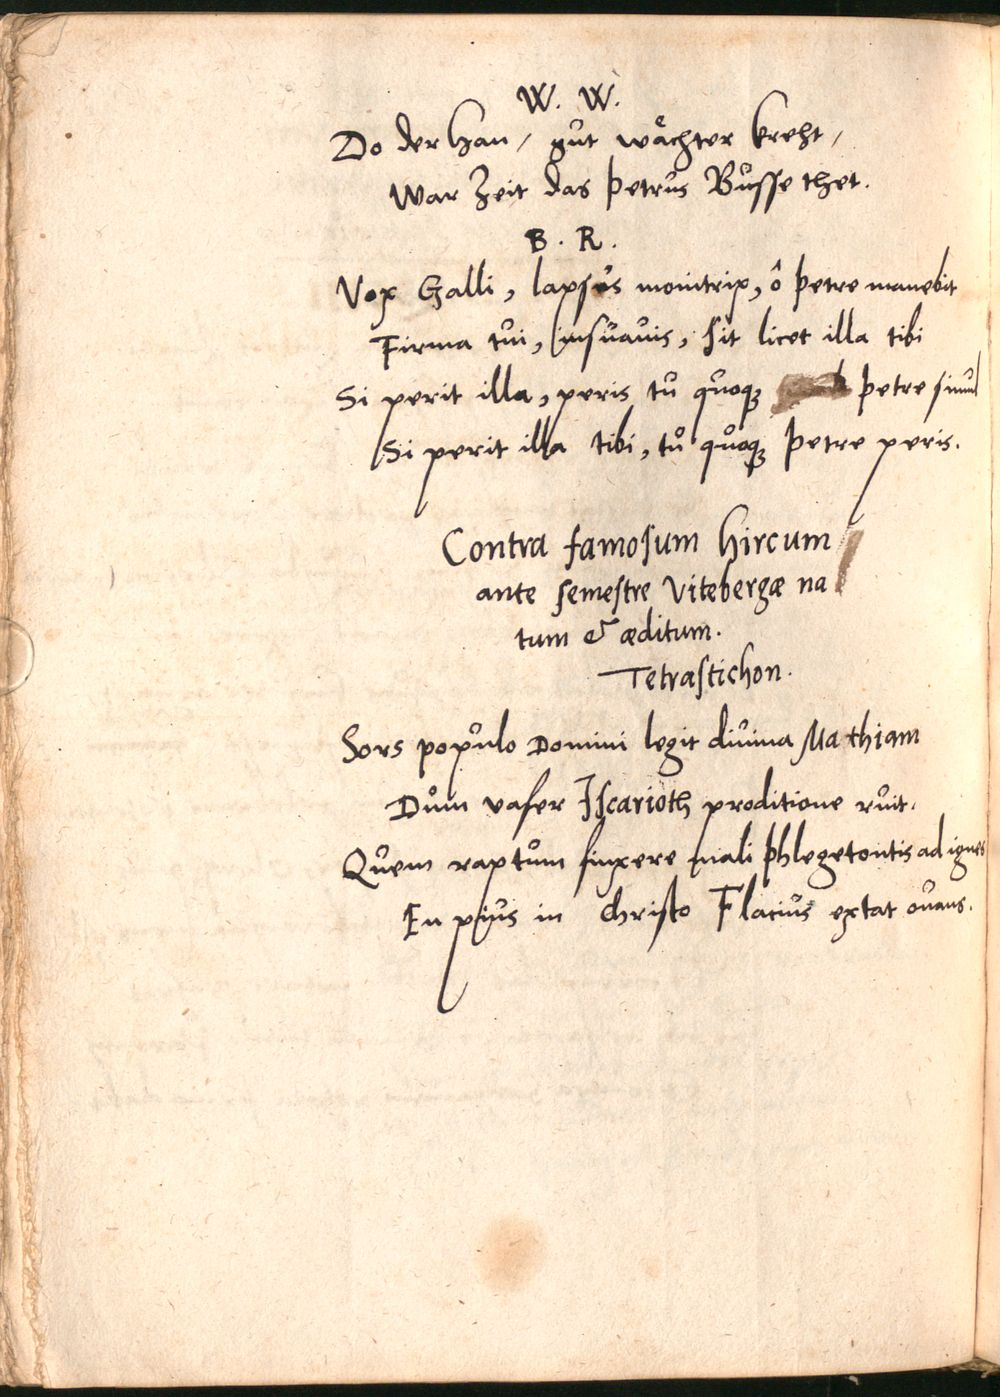 W. W.
Do der Han / gut wächter kreht /
War Zeit das Petrus Busse thet.
B. R.
Vox Galli, lapsus monitrix, ô Petre manebit
Firma tui, insuavis, sit licet illa tibi
Si perit illa, peris tu quoque Petre simul
Si perit illa tibi, tu quoque Petre peris.
Contra famosum hircum
ante semestre Vitebergæ na
tum & æditum.
Tetrastichon.
Sors populo Domini legit diuina Mathiam
Dum vafer Iscarioth proditione ruit.
Quem raptum finxere mali Phlegetontis ad ignes
En pius in Christo Flacius extat ouans.